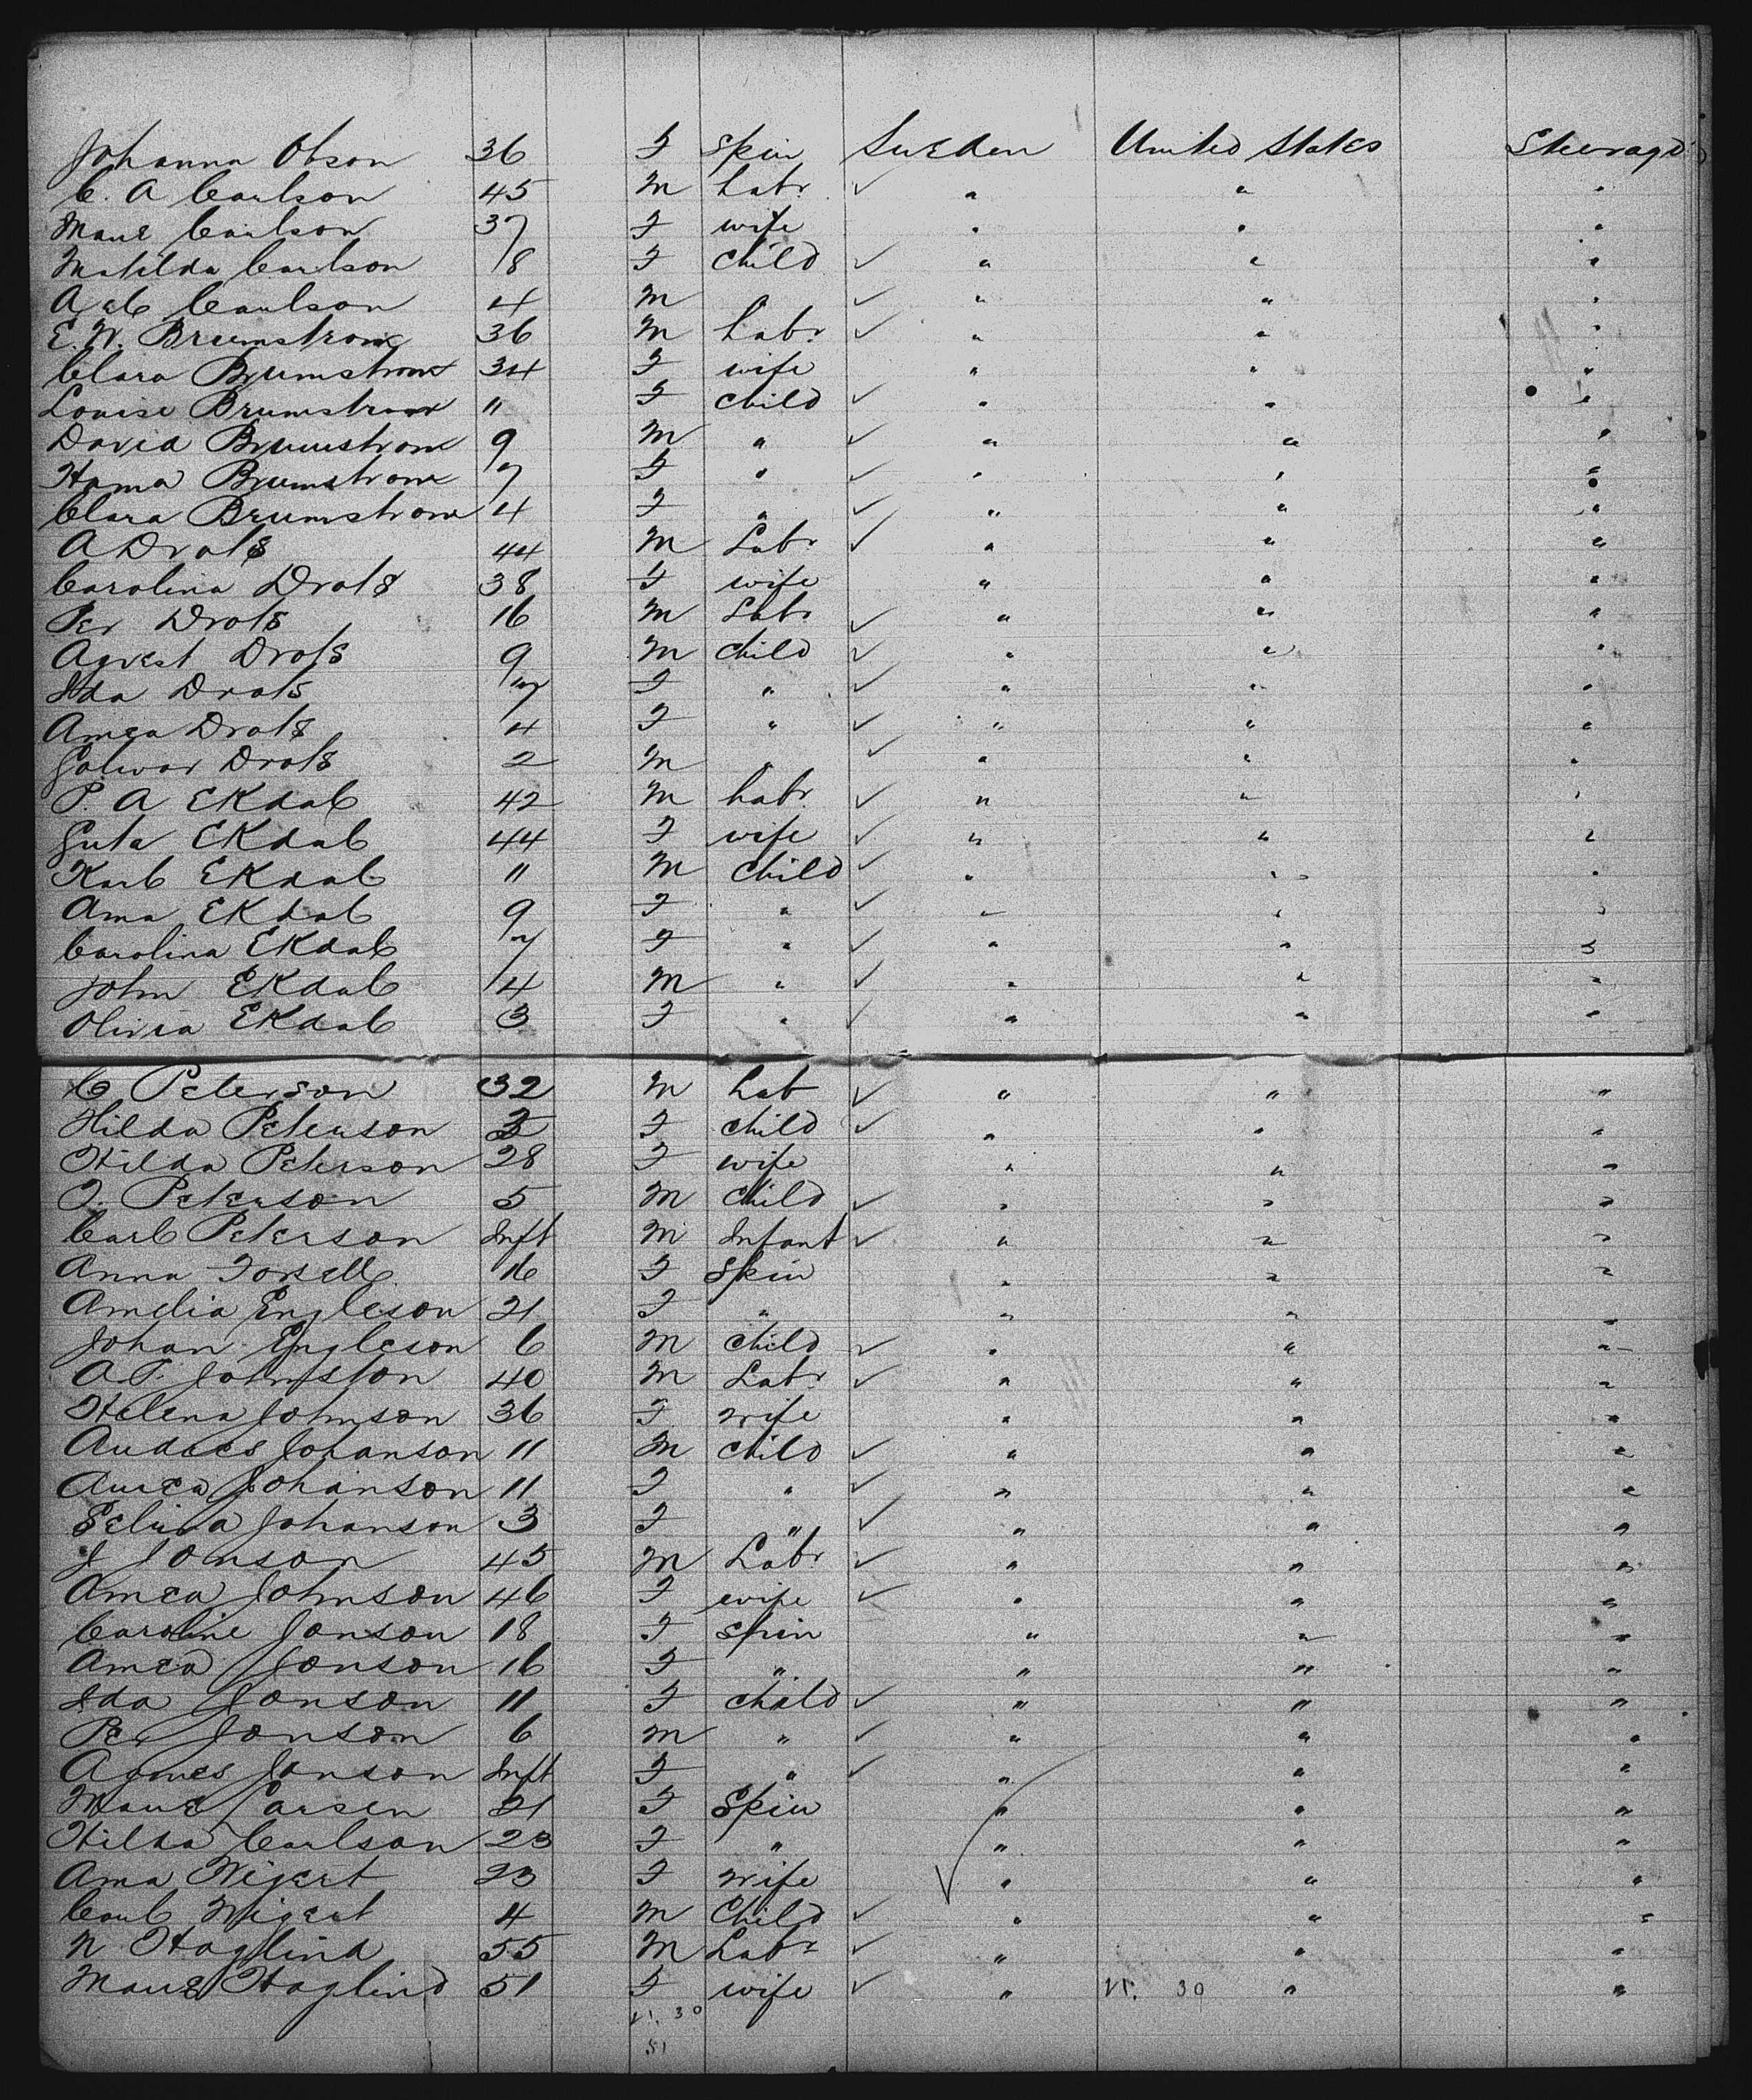 Johanna Olson 36 F Spin Sweden United States Steerage
C. A Carlson 45 M Labr ✓ " " "
Marie Carlson 37 F wife " " "
Matilda Carlson 8 F Child ✓ " " "
Axel Carlson 4 M ✓ " " "
E. W. Brumstrom 36 M Labr ✓ " " "
Clara Brumstrom 34 F wife " " "
Louise Brumstrom 11 F Child ✓ " " "
David Brumstrom 9 M " ✓ " " "
Hama Brumstrom 7 F " ✓ " " "
Clara Brumstrom 4 F " ✓ " " "
A Drols 44 M Labr ✓ " " "
Carolina Drols 38 F wife " " "
Per Drols 16 M Labr ✓ " " "
Agrest Drols 9 M Child ✓ " " "
Ida Drols 7 F " ✓ " " "
Amea Drols 4 F " ✓ " " "
Drols 2 M " ✓ " " "
P. A Ekdal 42 M Labr ✓ " " "
Guta Ekdal 44 F wife ✓ " " "
Karl Ekdal 11 M Child ✓ " " "
Ama Ekdal 9 F " ✓ " " "
Carolina Ekdal 7 F " ✓ " " "
John Ekdal 4 M " ✓ " " "
Olivia Ekdal 3 F " ✓ " " "
C Peterson 32 M Lab ✓ " " "
Hilda Peterson 3 F Child ✓ " " "
Hilda Peterson 28 F wife " " "
F. Peterson 5 M Child ✓ " " "
Carl Peterson Inft M Infant ✓ " " "
Anna Forsell 16 F Spin " " "
Amelia Engleson 21 F " " " "
Johan Engleson 6 M Child ✓ " " "
A. P. Johnston 40 M Labr ✓ " " "
Helena Johnson 36 F wife " " "
Audaes Johanson 11 M Child ✓ " " "
Aurea Johanson 11 F " ✓ " " "
Selina Johanson 3 F " ✓ " " "
J Jonson 45 M Labr ✓ " " "
Amea Johnson 46 F wife ✓ " " "
Caroline Jonson 18 F Spin " " "
Amea Jonson 16 F " " " "
Ida Jonson 11 F Child ✓ " " "
Per Jonson 6 M " ✓ " " "
Agnes Jonson Inft F " ✓ " " "
Marie Larsen 21 F Spin " " "
Hilda Carlson 23 F " " " "
Ama Wigert 23 F wife ✓ " " "
Carl Wigert 4 M Child ✓ " " "
N Haglind 55 M Labr ✓ " " "
Marie Haglind 51 F wife ✓ " 21. 30 " "
21. 30
51